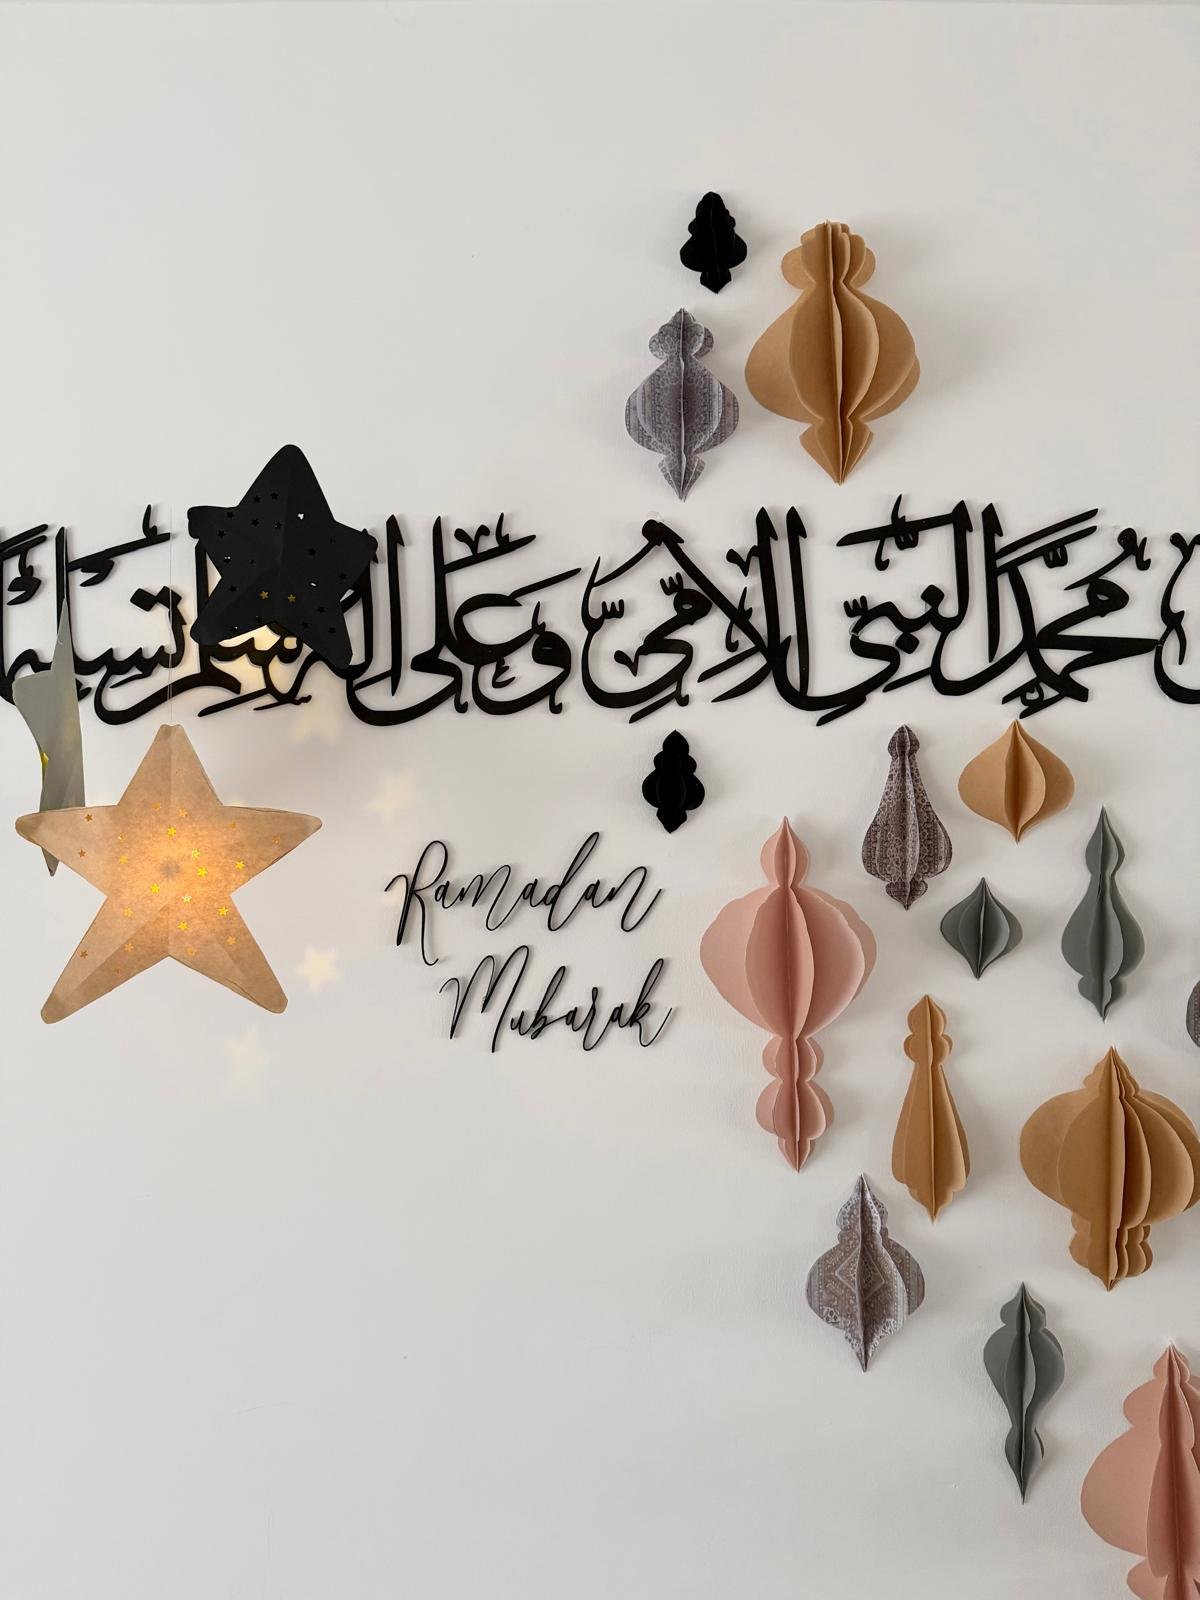 محمد النبي الأمي وعلى آله وسلم تسليما
Ramadan
Mubarak